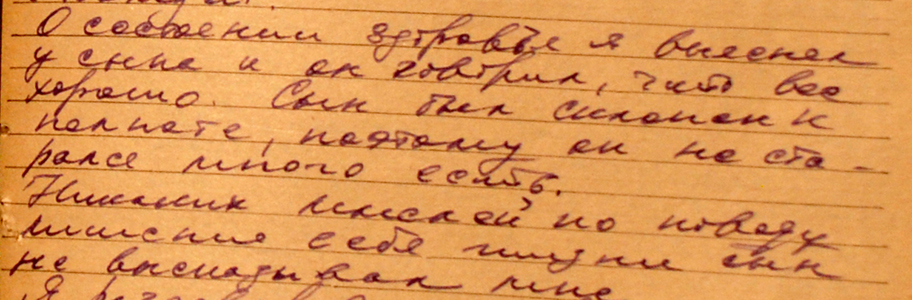 О состоянии здоровья я выяснял
у сына и он говорил, что все
хорошо. Сын был склонен к
полноте, поэтому он не ста-
рался много есть.
Никаких мыслей по поводу
лишения себя жизни сын
не высказывал мне